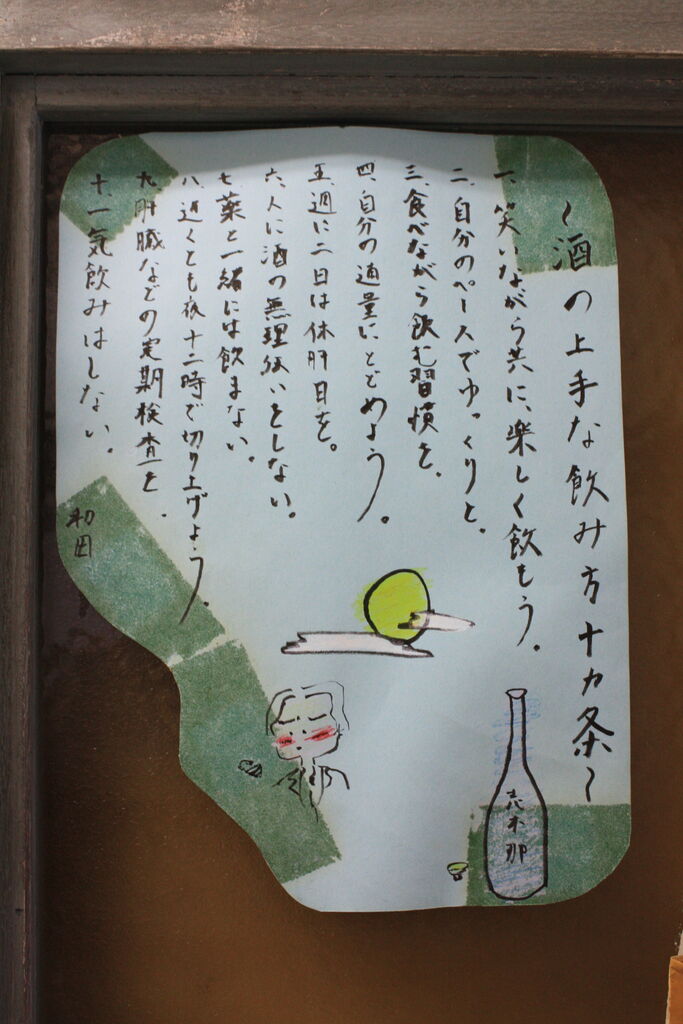 ～酒の上手な飲み方十カ条～
一、笑いながら共に、楽しく飲もう。
二、自分のペースでゆっくりと。
三、食べながら飲む習慣を。
四、自分の適量にとどめよう。
五、週に二日は休肝日を。
六、人に酒の無理強いをしない。
七、薬と一緒には飲まない。
八、遅くとも夜十二時で切り上げよう。
九、肝臓などの定期検査を。
十、一気飲みはしない。
和田
志木那